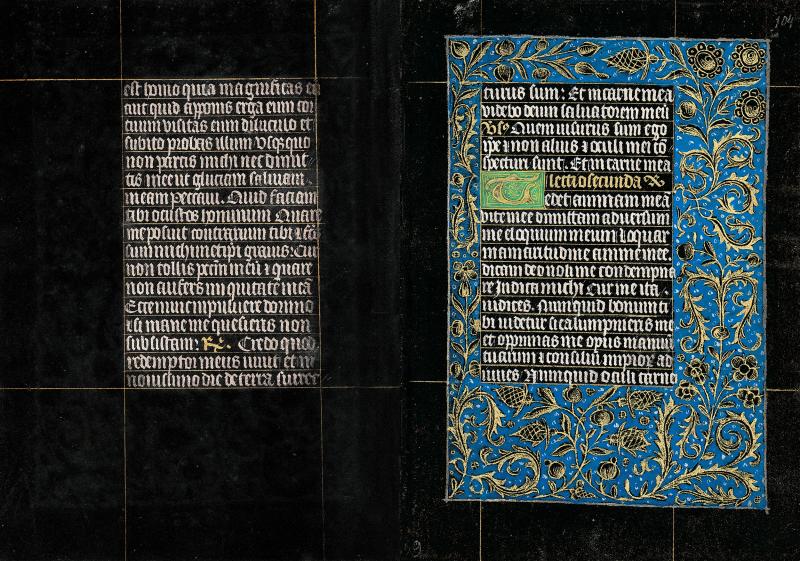 est homo quia magnificas eu
aut quid apponis erga eum cor
tuum visitas eum diluculo et
subito probas illum Usqʒ quo
non parcis michi nec dimit
tis me ut gluciam salivam
meam Peccavi. Quid faciam
tibi o custos hominum Quare
me posuisti contrarium tibi ⁊ fc̄s
sum michimetipi gravis. Cur
non tollis pctm̄ meū ⁊ quare
non aufers iniquitatē meā
Ecce nunc in pulvere dormio
⁊ si mane me quesieris non
subsistam. R. Credo quod
redemptor meus vivit et in
novissimo die de terra surrec
104
turus sum: Et in carne mea
videbo deum salvatorem meū
Vs Quem visurus sum ego
ipe ⁊ non alius ⁊ oculi mei cō
specturi sunt. Et in carne mea
lectio secunda
Tedet animam mea
vite mee dimittam adversum
me eloquium meum Loquar
in amaritudine anime mee.
dicam deo noli me condempna
re Indica michi Cur me ita
iudices. Nunquid bonum ti
bi videtur si calumpnieris me
et opprimas me opus manuū
tuarum ⁊ consiliū impioꝝ ad
iuves Nunquid oculi carne